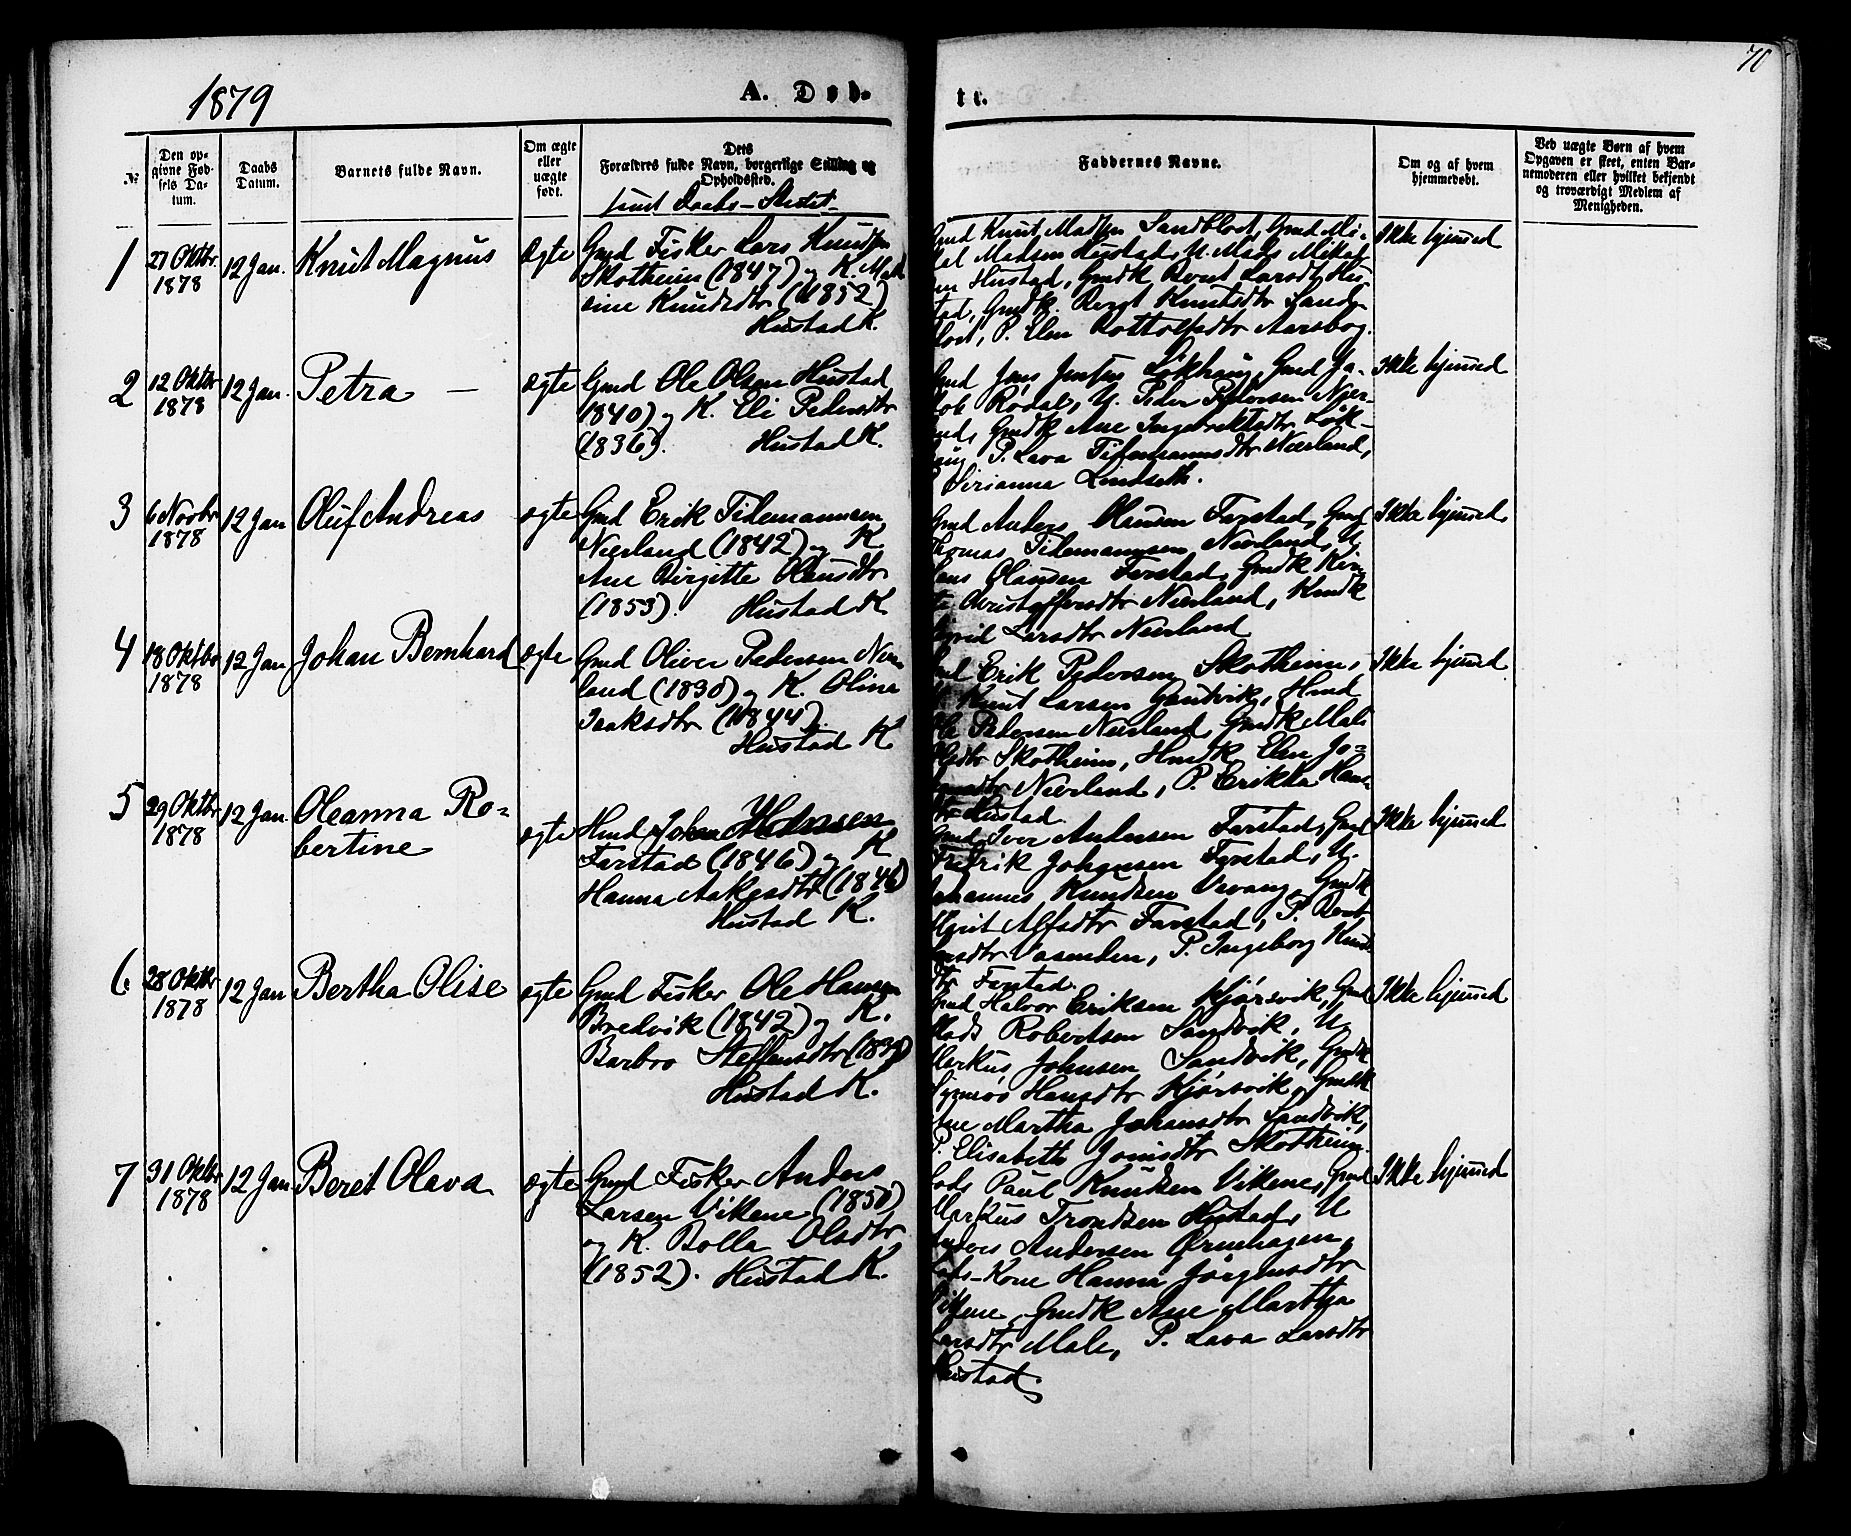 70
1879
A. Døb-
te.
№
Den op-
givne Fød-
sels Da-
tum.
Daabs
Datum.
Barnets fulde Navn.
Om ægte
eller
uægte
født.
Dets
Forældres fulde Navn, borgerlige Stilling og
Opholdssted.
samt Daabs-Stedet
Faddernes Navne.
Om og af hvem
hjemmedøbt.
Ved uægte Børn af hvem
Opgaven er skeet, enten Bar-
nemoderen eller hvilket bekjendt
og troværdigt Medlem af
Menigheden.
1
27 Oktbr.
1878
12 Jan.
Knut Magnus
Ægte
Gmd Fisker Lars Knudsen
Skotheim (1847) og K. Mad
sine Knudsdtr (1852)
Hustad K.
Gmd Knut Madsen Sandblost, Gmd Mi-
kal Madsen Hustad, U. Mads Mikal
sen Hustad, Gmdk Berit Larsdtr Hu
stad, Gmdk. Berit Knutsdtr Sand
blost, P. Elen Rottolfsdtr Aarsbog.
Ikke hjemmed
2
12 Oktbr
1878
12 Jan.
Petra —
ægte
Gmd Ole Olsen Hustad
1840) og K. Eli Pedersdtr
(1836). Hustad K.
Gmd Jens Jensen Løkhaug, Gmd Ja-
kob Rødal, U. Peder Pedersen Nær-
land, Gmdk Ane Ingebrektsdtr Løk-
haug P. Lava Tidemannsdtr Nærland,
P. Sirianna Lindseth.
Ikke hjemmed
3
6 Novbr
1878
12 Jan
Oluf Andreas
ægte
Gmd Erik Tidemannsen
Nærland (1842) og K.
Ane Birgitte Olausdtr
(1853). Hustad K
Gmd Anders Olausen Farstad, Gmd
Thomas Tidemannsen Nærland, U.
Hans Olausen Farstad, Gmdk Kirs
te Christoffersdtr Nærland, Kmdk
Sigrid Larsdtr Nærland
Ikke hjemmed
4
18 Oktbr
1878
12 Jan
Johan Bernhard
ægte
Gmd Oliver Pedersen Nær-
land (1830) og K. Olina
Isaksdtr (1844).
Hustad K
Gmd Erik Pedersen Skotheim,
U. Knut Larsen Gautvik, Hmd
Ole Pedersen Nærland, Gmdk Mali
Olsdtr Skotheim, Hmdk Elen Jo-
hansdtr Nærland, P. Erikka Hans-
dtr Hustad.
Ikke hjemmed
5
29 Oktbr
1878
12 Jan.
Oleanna Ro-
bertine
ægte
Hmd Johan
Farstad (1846) og K
Hanna Aakesdtr (1846)
Hustad K.
Gmd Iver Andersen Farstad, Gmd
Fredrik Johansen Farstad, U.
Johannes Knudsen Vevang, Gmdk
Marit Alfsdtr Farstad, P. Berit
Larsdtr Vasenden, P. Ingeborg Knuds
dtr Farstad.
Ikke hjemmed
6.
28 Oktbr
1878
12 Jan
Bertha Olise
ægte
Gmd Fisker Ole Hansen
Bredvik (1842) og K.
Barbro Steffensdtr (183
Hustad K.
Gmd Halvor Eriksen Kjørsvik, Gmd
Mads Robertsen Sandvik, U.
Markus Johnsen Sandvik, Gmdk
Synnøv Hansdtr Kjørsvik, Gmdk
Ane Martha Johansdtr Sandvik,
P. Elisabeth Jonsdtr Skotheim
Ikke hjemmed
7
31 Oktbr
1878
12 Jan
Beret Olava
ægte
Gmd Fisker Anders
Larsen Vikene (1850)
og K. Bolla Olsdtr
(1852). Hustad K.
Lods Paul Knudsen Vikene, Gmd
Markus Trondsen Hustad, U
Anders Andersen Ørnehagen,
Lods-Kone Hanna Jørgensdtr
Vikene, Gmdk Ane Martha
Larsdtr Male, P. Lava Larsdtr
Hustad.
Ikke hjemmed